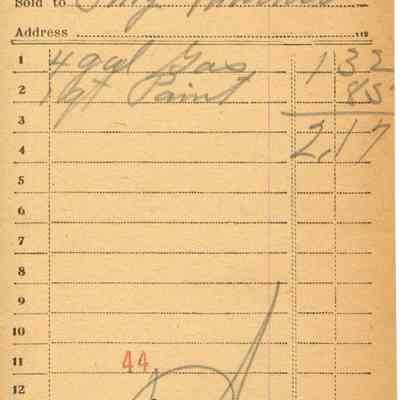 Sold to
Address
1 4 gal Gas 1 32
2 1 qt Paint 85
3
4 2,17
5
6
7
8
9
10
11 44
12